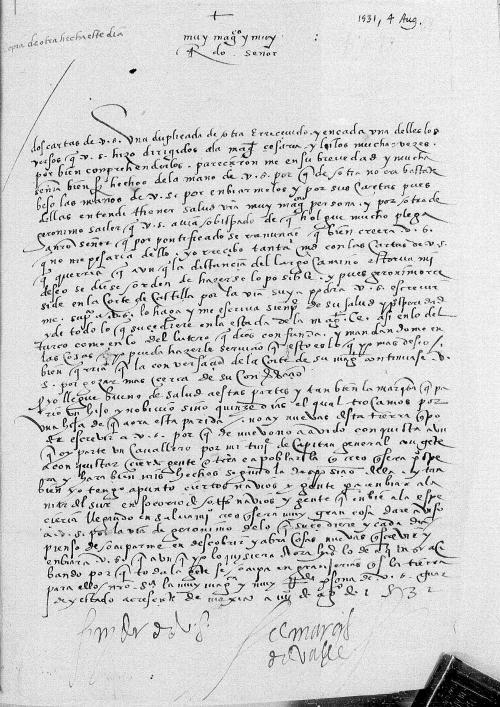 +
1531, 4 Aug.
opia de otra hecha este dia
muy mag^co y muy
R^do señor
dos cartas de v. s. una duplicada de otra e rrecevido y en cada una dellas los
versos q v. s. hizo dirigidos a la mag^t cesarea y leilos muchas vezes
por bien conprehenderlos. parecieron me en su brevedad y mucha
seña bien hechos de la mano de v. s. por q de otra no era bastante
beso las manos de v. s. por enbiarmelos y por sus cartas pues
dellas entendi thener salud v^ra muy mag^ca persona. y por otra de
geronimo sailer q v. s. avia obispado de q holgue mucho plega
a n^ro señor q por pontificado se rrenuncie q bien creera v. s.
q no me pesaria dello. yo rrecibo tanta m^d con las cartas de v. s.
q querria q aun q la distancia del largo camino estorva mi
deseo se diese orden de hazerse lo posible. y pues geronimo re
side en la corte de castilla por la via suya podra v. s. escrevir
me. sup^co a v. s. lo haga y me escriva sienpre de su salud y prosperidad
y de todo lo q sucediere en la estada de la mag^t ce. asi en lo del
turco como en lo del lutero q dios confunda. y mandandome en
las cosas q yo pueda hazerle servicio q esto es lo q yo mas deseo
bien q^rria q la conversacion de la corte de su mag^t continuase v.
s. por gozar mas cerca de su
yo llegue bueno de salud a estas partes y tanbien la marquesa q pa
rio un hijo y no bivio sino quinze dias el qual trocamos por
una hija de q aora esta parida. no ay nuevas desta tierra q po
der escrevir a v. s. por q de nuevo no a avido conquista aun
q oy parte un cavallero por mi tini^e de capitan general con gente
a conquistar cierta gente
y hara bien mis hechos segund la desposicion della. y tan
bien yo tengo a punto ciertos navios y gente para enbiar a la
mar del sur en socorro de otros navios y gente q inbie a la espe
cieria llegando en salvamento creo q sera muy gran cosa. dare aviso
a v. s. por la via de geronimo de lo q sucediere y cada dia
pienso de ocuparme en descobrir y abra cosas nuevas q screvir y
enbiar a v. s.
bando por q toda la gente se ocupa en granjerias
para ello. n^ro s^r la muy mag^ca y muy R^da persona de v. s. guar
de y estado acresente de mexico a iiii de ag^to de 1531
el marques
del valle